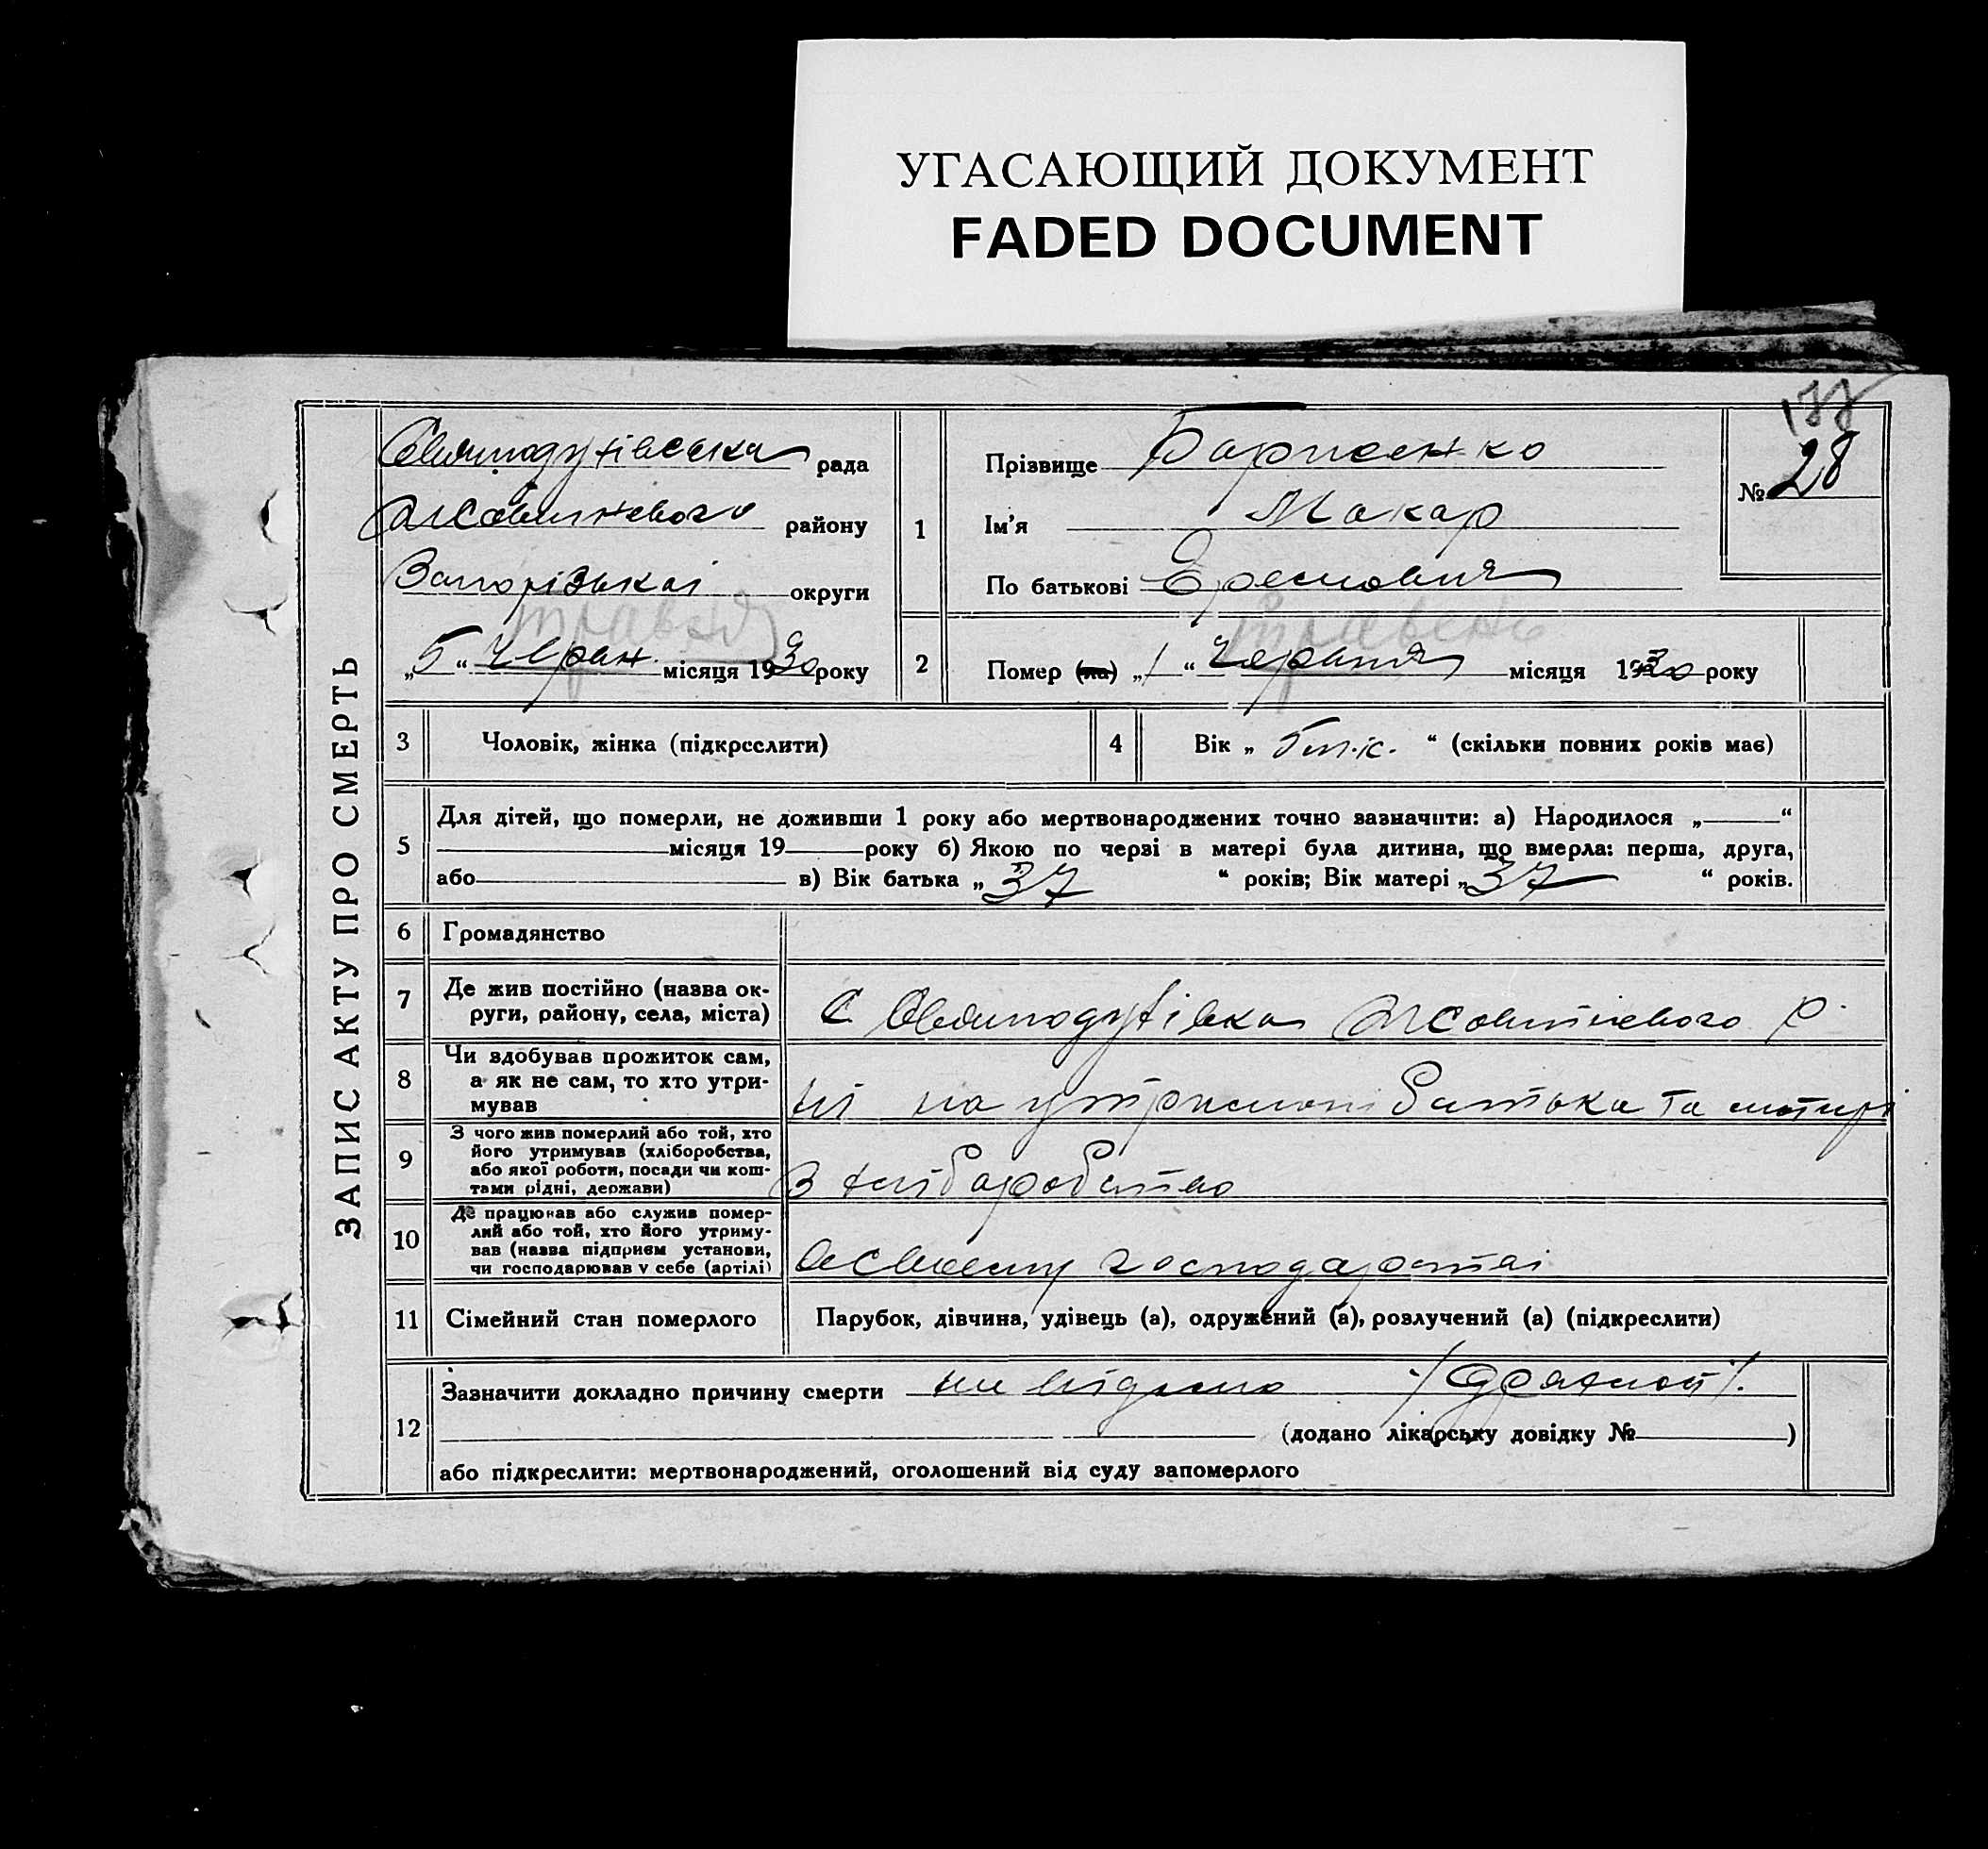 УГАСАЮЩИЙ ДОКУМЕНТ
FADED DOCUMENT
ЗАПИС АКТУ ПРО СМЕРТЬ
177
№ 28
рада
Жовтневого району
Запорізької округи
травня
„5“ Червн місяця 1930 року
1
Прізвище Борисенко
Ім'я Макар
По батькові
травень
2
Помер (ла) „1“ Червня місяця 1930 року
3
Чоловік, жінка (підкреслити)
4
Вік „ “ (скільки повних років має)
5
Для дітей, що померли, не доживши 1 року або мертвонароджених точно зазначити: а) Народилося „ “
місяця 19 року б) Якою по черзі в матері була дитина, що вмерла: перша, друга,
або в) Вік батька „ 37 “ років; Вік матері „ 37 “ років.
6
Громадянство
7
Де жив постійно (назва ок-
руги, району, села, міста)
с Жовтневого р.
8
Чи здобував прожиток сам,
а як не сам, то хто утри-
мував
ні на батька та матирі
9
З чого жив померлий або той, хто
його утримував (хліборобства,
або якої роботи, посади чи кош-
тами рідні, держави)
З
10
Де працював або служив помер-
лий або той, хто його утриму-
вав (назва підприєм установи,
чи господарював у себе (артілі)
господарстві
11
Сімейний стан померлого
Парубок, дівчина, удівець (а), одружений (а), розлучений (а) (підкреслити)
12
Зазначити докладно причину смерти
(додано лікарську довідку № )
або підкреслити: мертвонароджений, оголошений від суду запомерлого